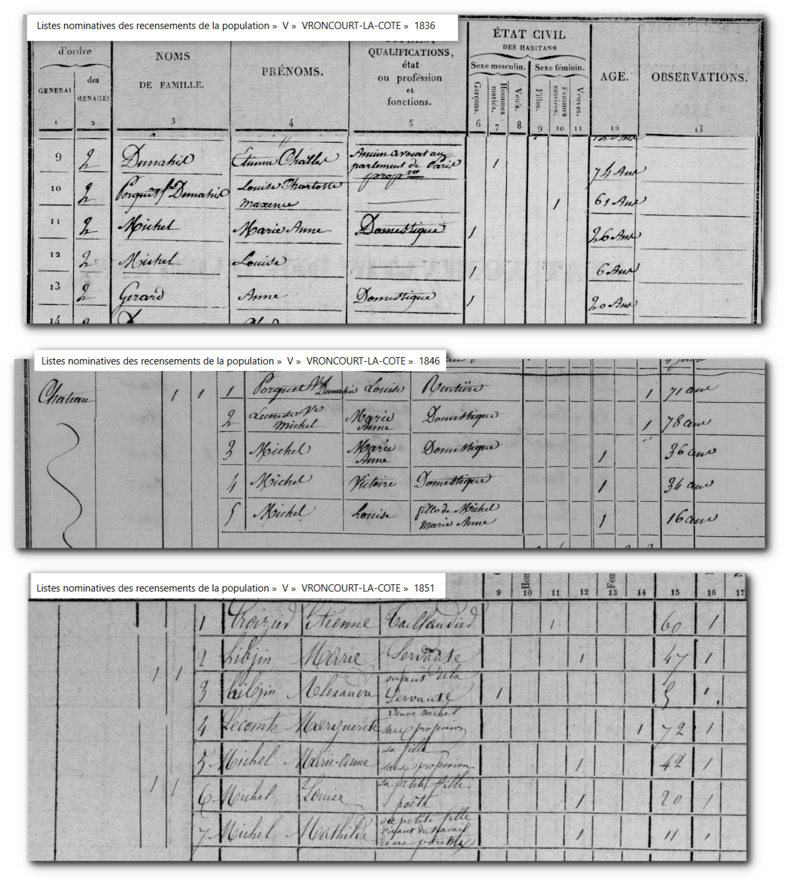 Listes nominatives des recensements de la population » V » VRONCOURT-LA-COTE » 1836
d'ordre
GENERAL
des
MENAGES
NOMS
DE FAMILLE.
PRÉNOMS.
QUALIFICATIONS,
état
ou proféssion
et
fonctions.
ÉTAT CIVIL
DES HABITANS
Sexe masculin.
Sexe féminin.
Garçons.
Hommes mariés.
Veufs.
Filles.
Femmes mariées.
Veuves.
AGE.
OBSERVATIONS.
1 2 3 4 5 6 7 8 9 10 11 12 13
9 2 Demahis Etienne Charles Ancien avocat au
parlement de Paris
propre
1 74 Ans
10 2 Porquet fe Demahis Louise Charlotte
Maxence
1 61 Ans
11 2 Michel Marie Anne Domestique 1 26 Ans
12 2 Michel Louise 1 6 Ans
13 2 Gerard Anne Domestique 1 20 Ans
14
Listes nominatives des recensements de la population » V » VRONCOURT-LA-COTE » 1846
Chateau 1 1 1 Porquet Ve Demahis Louise Rentière 1 71 ans
2 Ve Michel Marie Anne Domestique 1 78 ans
3 Michel Marie Anne Domestique 1 36 ans
4 Michel Victoire Domestique 1 34 ans
5 Michel Louise fille de Michel
Marie Anne
1 16 ans
Listes nominatives des recensements de la population » V » VRONCOURT-LA-COTE » 1851
9 10 11 12 13 14 15 16 17
1 Etienne 11 60 1
1 1 2 Marie Servante 1 47 1
enfant de la
3 Alexandre Servante 1 1
veuve michel
4 Lecomte Marguerite sans profession 1 72 1
sa fille
5 Michel Marie-anne sans profession 1 42 1
sa petite fille
1 1 6 Michel Louise poëte 1 20 1
sa petite fille
7 Michel Mathilde 1 11 1